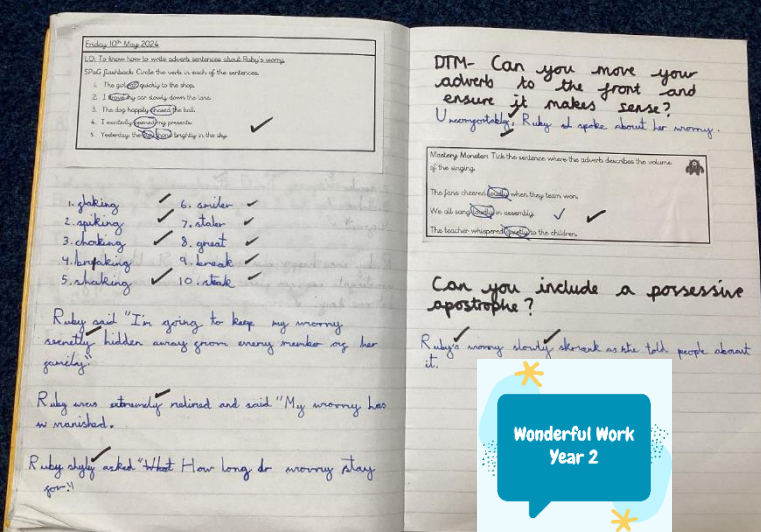 Friday 10th May 2024
LO: To know how to write adverb sentences about Ruby's worry.
SPaG flashback: Circle the verb in each of the sentences.
1. The got quickly to the shop.
2. I travel my car slowly down the lane.
3. The dog happily chased the ball.
4. I excitedly opened my presents.
5. Yesterday, the shone brightly in the sky.
1. flaking
2. spiking
3. choking
4. breaking
5. shaking
6. smiler
7. staler
8. great
9. break
10. steak
Ruby said "I'm going to keep my worry
secretly hidden away from every of her
family."
Ruby was extremely relired and said "My worry has
vanished.
Ruby shyly asked "What How long do worry stay
for."
DTM- Can you move your
adverb to the front and
ensure it makes sense?
Uncomfortably, Ruby spoke about her worry.
Mastery Monster: Tick the sentence where the adverb describes the volume
of the singing.
The fans cheered loudly when they team won.
We all sang loudly in assembly.
The teacher whispered quietly to the children.
Can you include a possessive
apostrophe?
Ruby's worry slowly shrank as she told people about
it.
Wonderful Work
Year 2